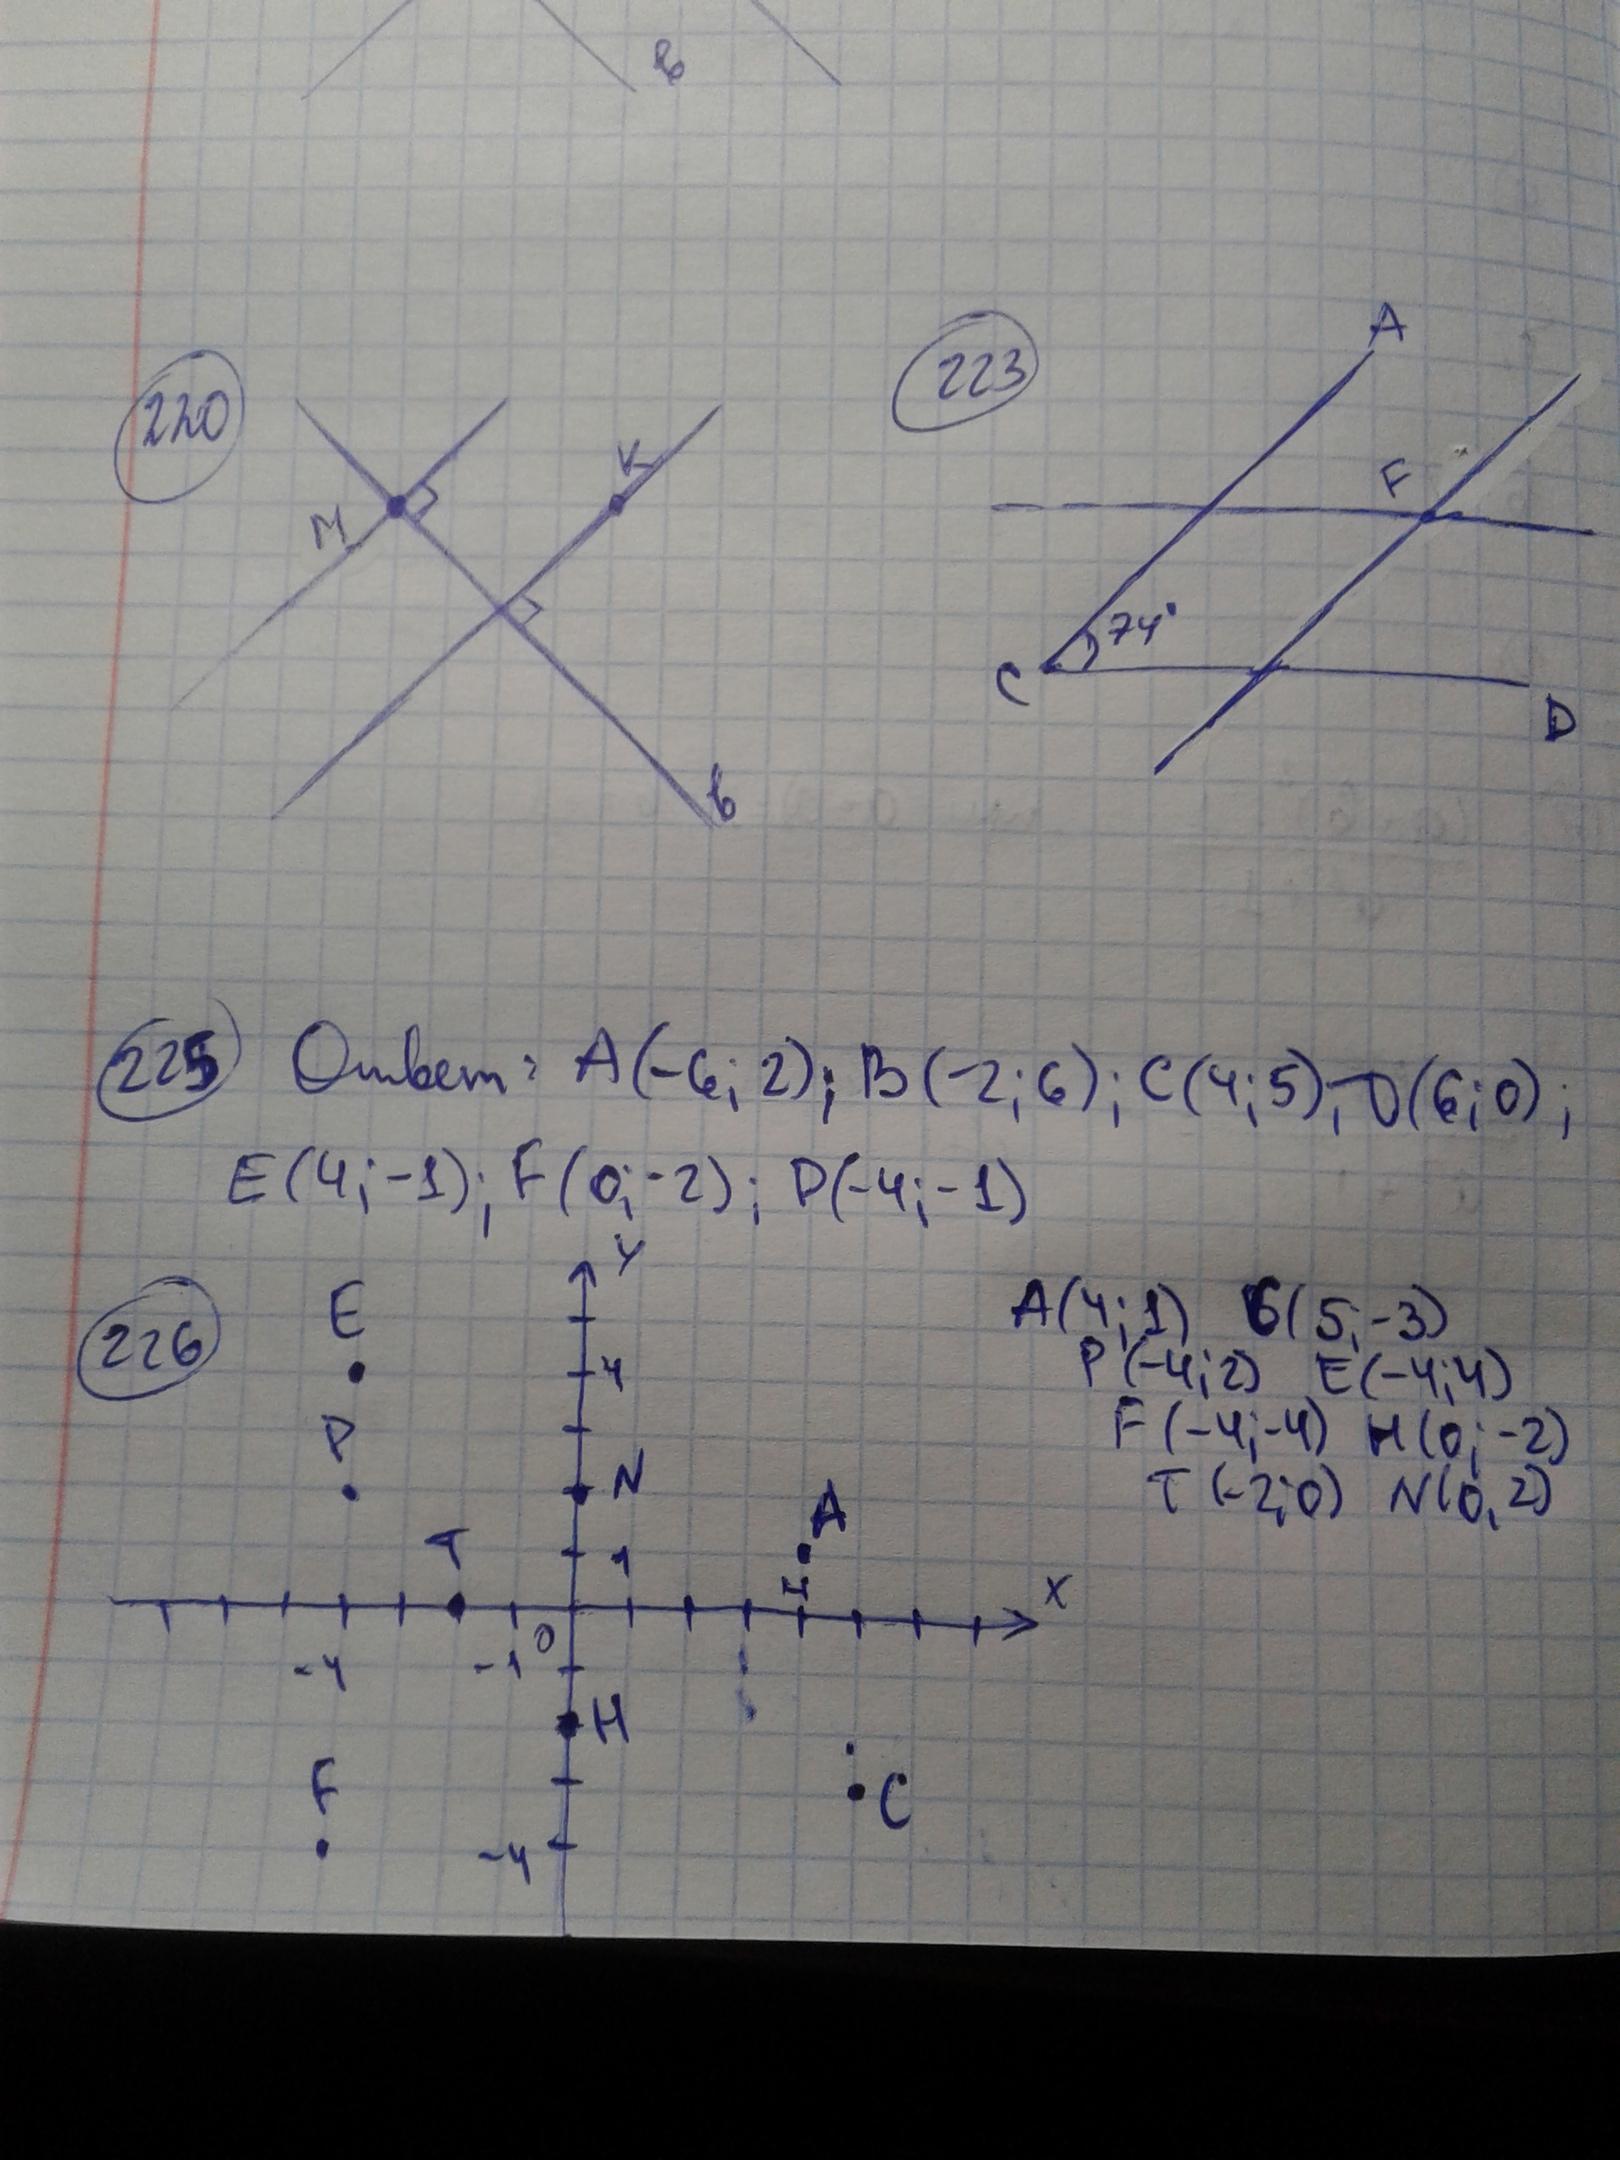 в
220
М
К
в
223
А
F
74°
С
D
225 Ответ: А(-6; 2); В(-2; 6); С(4; 5); D(6; 0);
Е(4; -1); F(0; -2); Р(-4; -1)
226
А(4; 1) С(5; -3)
Р(-4; 2) Е(-4; 4)
F(-4; -4) Н(0; -2)
Т(-2; 0) N(0, 2)
Y
Е
4
Р
N
А
Т
1
4
X
0
-4
-1
Н
F
С
-4